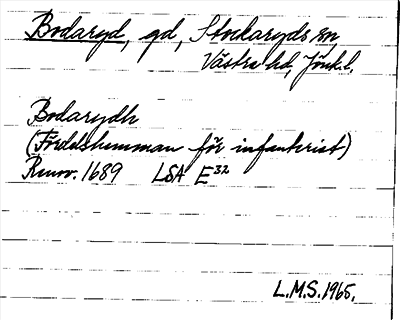 Bodaryd, gd, Stockaryds sn,
Västra hd, Jönk.l.
Bodarydh
(Fördelshemman för infanterist)
Renov. 1689 LSA E³²
L.M.S. 1965.